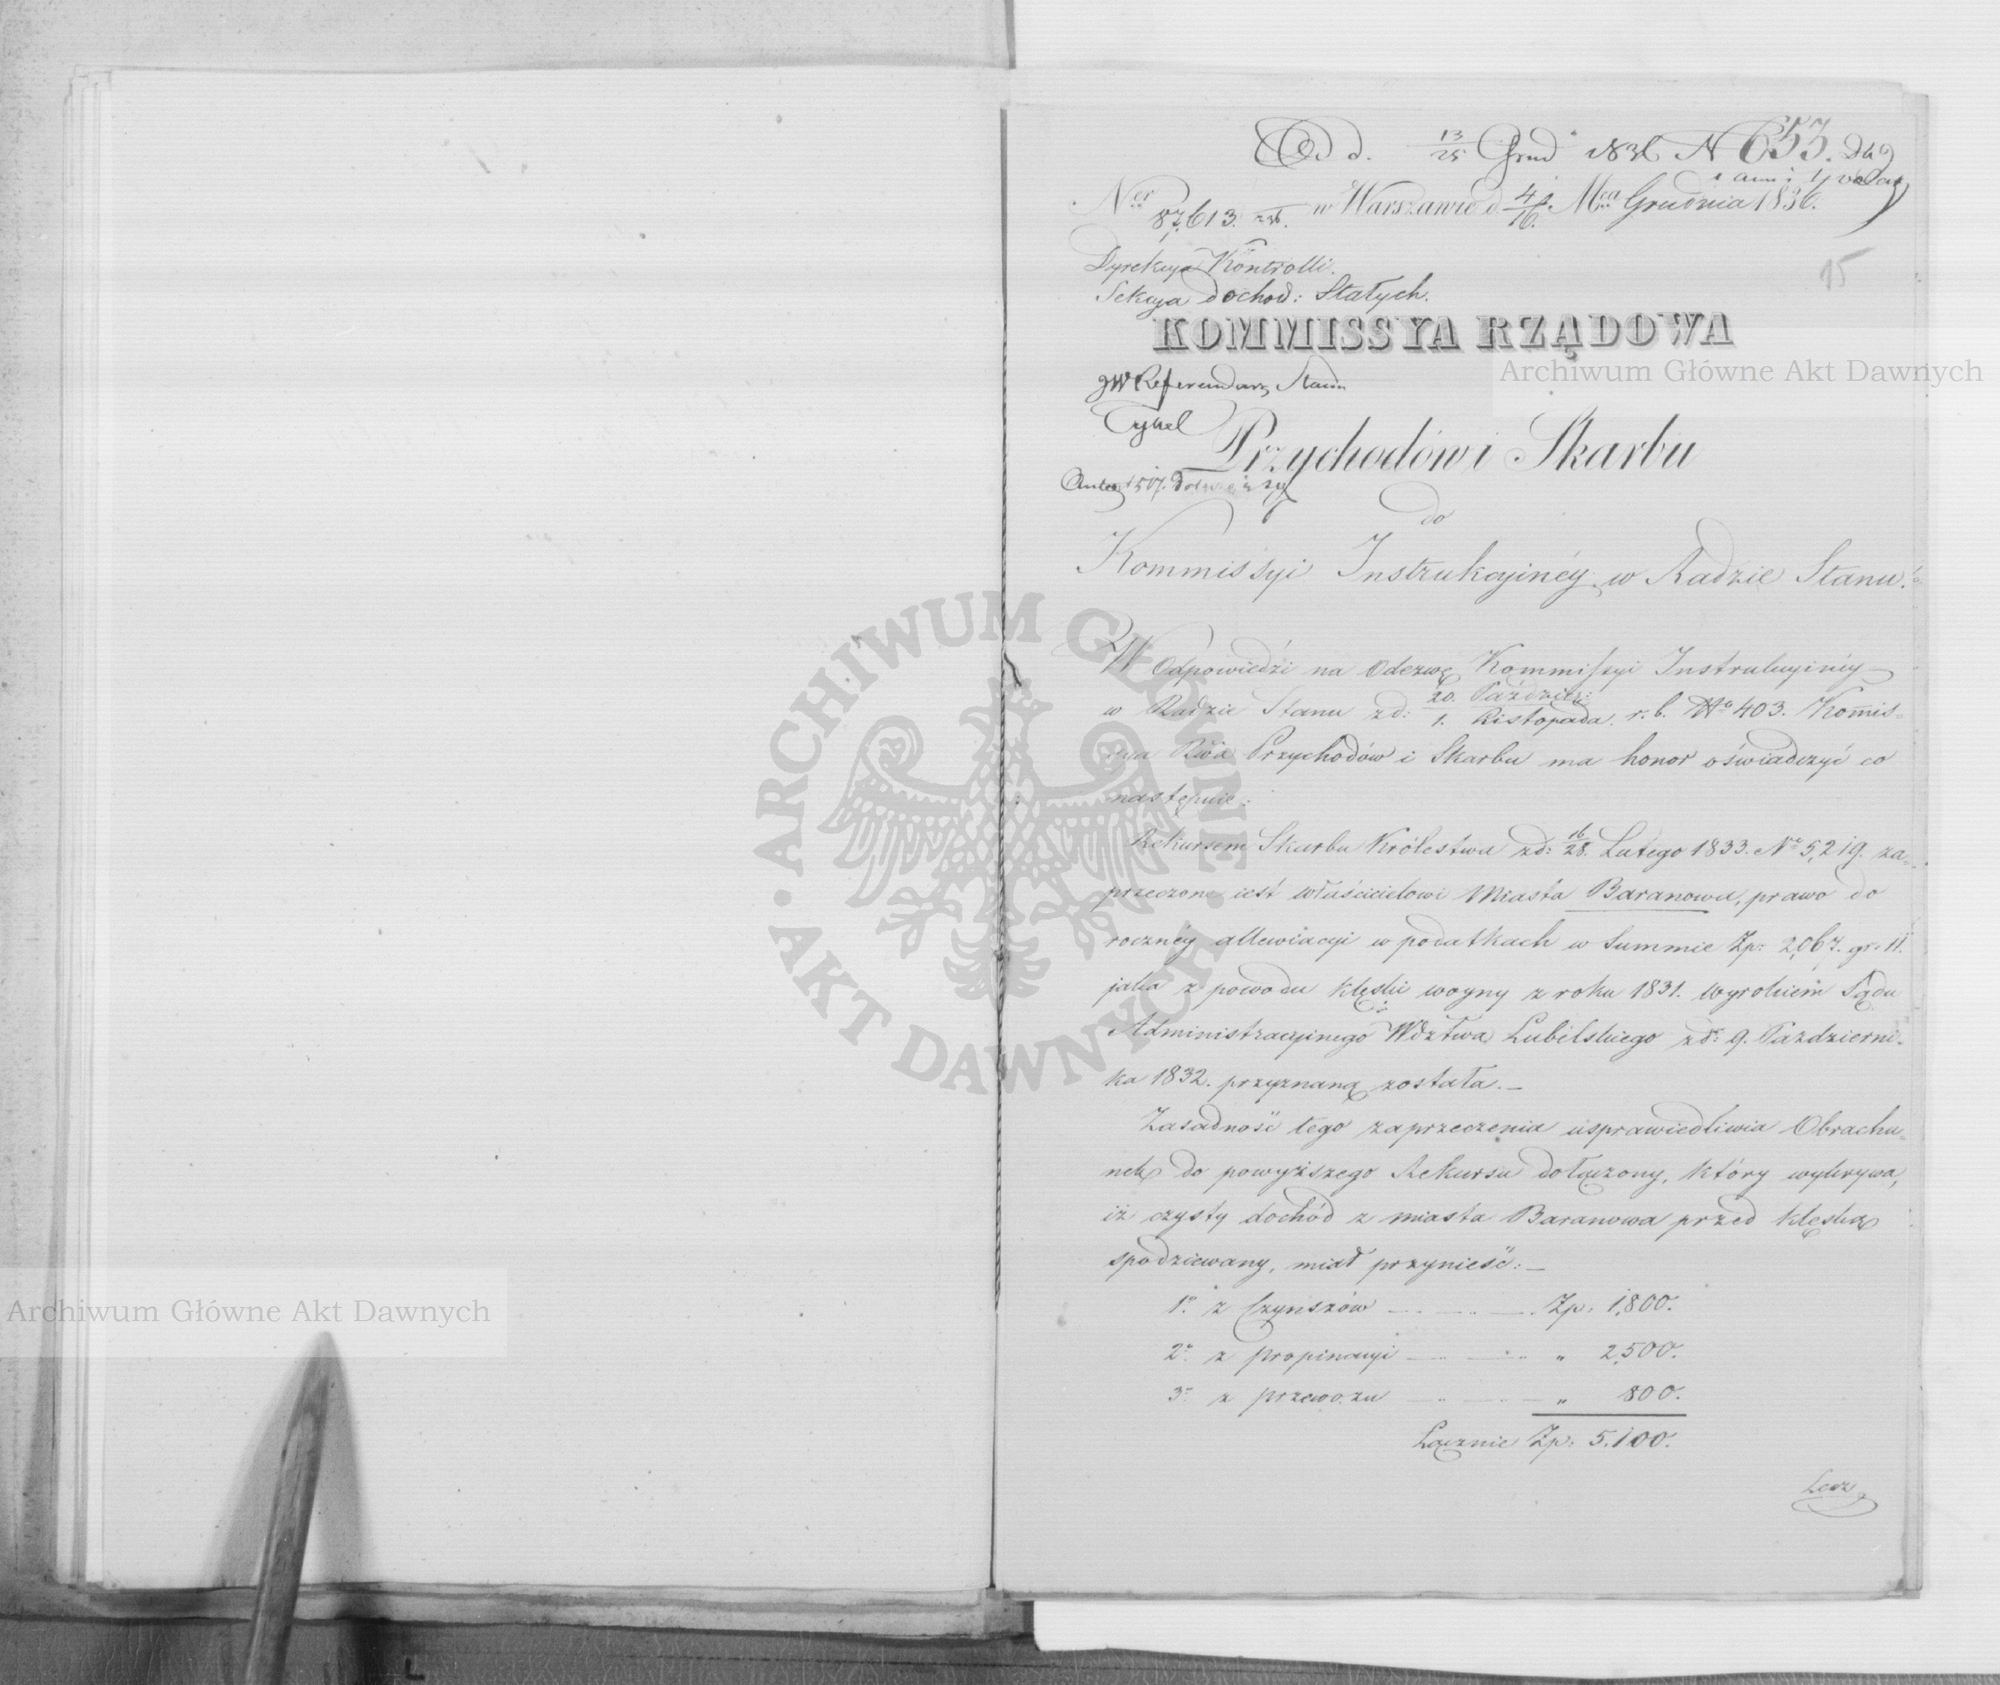 Od d. 13/25 Grud 1836 N 653.
Ner 87,613. w Warszawie d. 4/16. Mca Grudnia 1836.
15
Dyrekcya Kontrolli.
Sekcya dochod: Stałych.
KOMMISSYA RZĄDOWA
JW Referendarz Stanu
Przychodów i Skarbu
do
Kommissyi Instrukcyinéy w Radzie Stanu.
W Odpowiedzi na Odezwę Kommissyi Instrukcyinéy
w Radzie Stanu z d: 20. Paździer: / 1. Listopada. r. b. No 403. Kommis-
sya Rwa Przychodów i Skarbu ma honor oświadczyć co
następuie:
Rekursem Skarbu Królestwa z d: 16/28. Lutego 1833. No 5,219. za-
przeczone iest właścicielowi Miasta Baranowa, prawo do
rocznéy allewiacyi w podatkach w Summie Zp: 2,067. gr. 11.
jaka z powodu klęski woyny z roku 1831. wyrokiem Sądu
Administracyinego Wdztwa Lubelskiego z d: 9. Październi-
ka 1832. przyznaną została.—
Zasadność tego zaprzeczenia usprawiedliwia Obrachu-
nek do powyższego Rekursu dołączony, który wykrywa,
iż czysty dochód z miasta Baranowa przed klęską
spodziewany, miał przynieść:—
1o. z Czynszów Zp: 1,800.
2o. z propinacyi " 2,500.
3o. z przewozu " 800.
Łącznie Zp: 5,100.
Lecz
Archiwum Główne Akt Dawnych
Archiwum Główne Akt Dawnych
ARCHIWUM GŁÓWNE AKT DAWNYCH